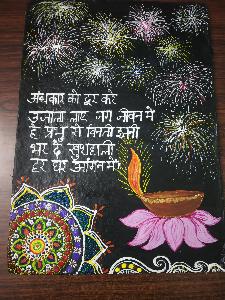 अंधकार को दूर करे
उजाला लाए जग जीवन में
है प्रभु से विनती इतनी
भर दे खुशहाली
हर घर आँगन में।